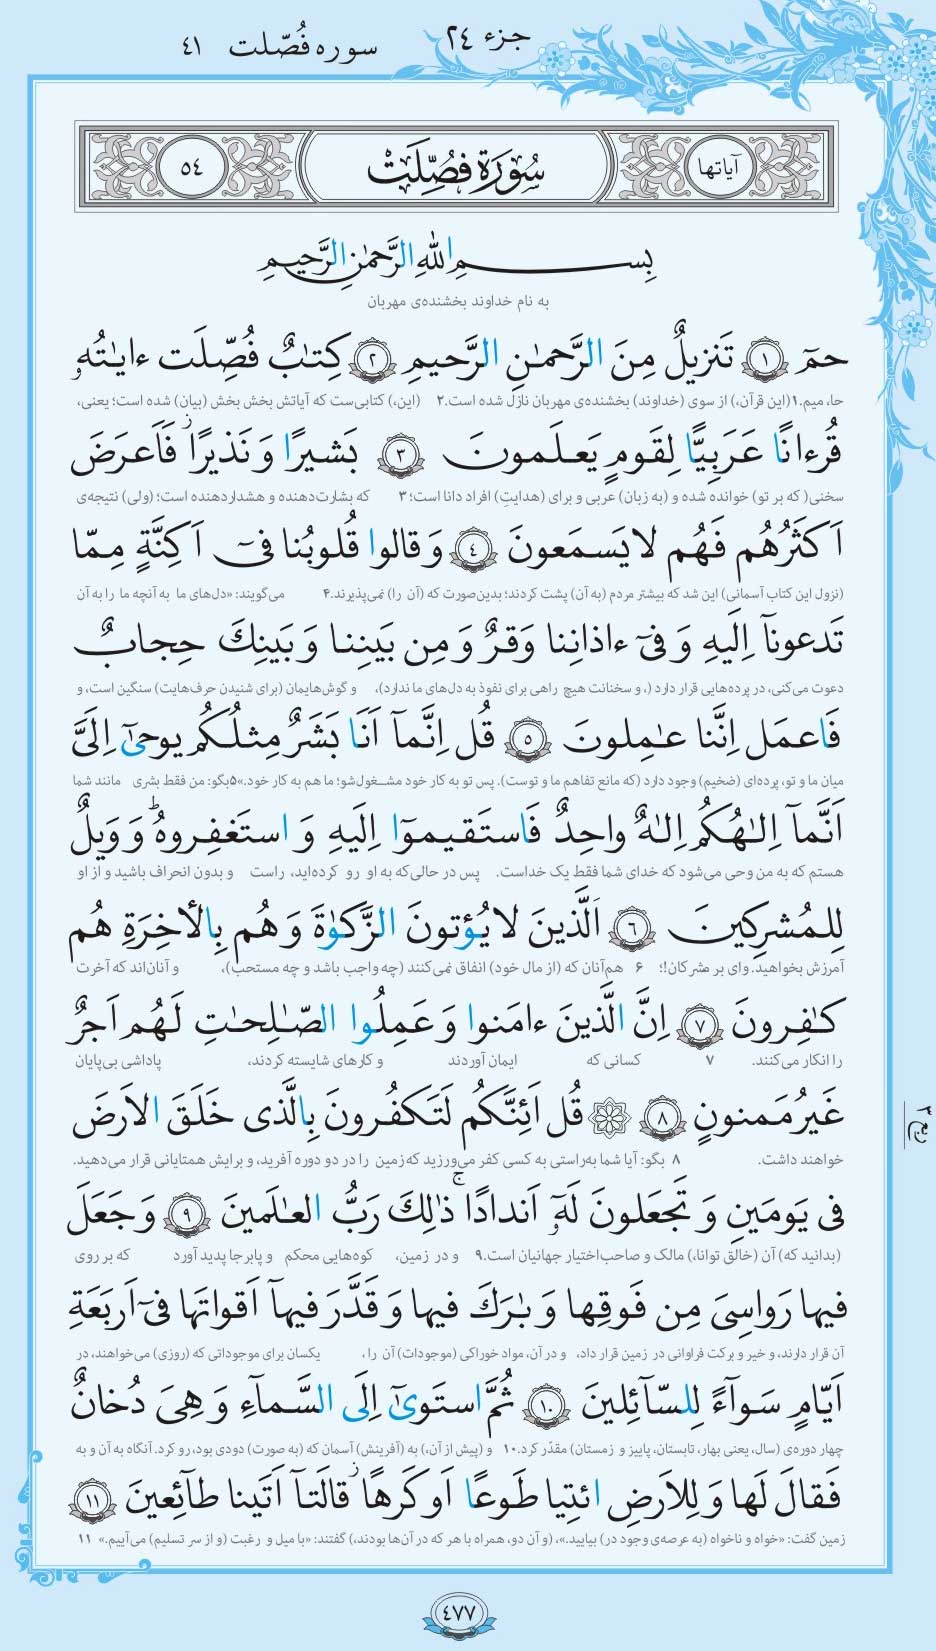 جزء ٢٤
سوره فُصّلت ٤١
آیاتها
سُورَة فُصِّلَتْ
٥٤
بِسمِ اللهِ الرَّحمٰنِ الرَّحیمِ
به نام خداوند بخشنده‌ی مهربان
حمٓ ١ تَنزیلٌ مِنَ الرَّحمٰنِ الرَّحیمِ ٢ کِتٰبٌ فُصِّلَت ءایٰتُهُ
حا، میم.۱ (این قرآن،) از سوی (خداوند) بخشنده‌ی مهربان نازل شده است.۲ (این،) کتابی‌ست که آیاتش بخش بخش (بیان) شده است؛ یعنی،
قُرءانًا عَرَبِیًّا لِقَومٍ یَعلَمونَ ٣ بَشیرًا وَ نَذیرًا ز فَاَعرَضَ
سخنی( که بر تو) خوانده شده و (به زبان) عربی و برای (هدایتِ) افراد دانا است؛ ۳ که بشارت‌دهنده و هشداردهنده است؛ (ولی) نتیجه‌ی
اَکثَرُهُم فَهُم لا یَسمَعونَ ٤ وَ قالوا قُلوبُنا فی اَکِنَّةٍ مِمّا
(نزول این کتاب آسمانی) این شد که بیشتر مردم (به آن) پشت کردند؛ بدین‌صورت که (آن را) نمی‌پذیرند.۴ می‌گویند: «دل‌های ما به آنچه ما را به آن
تَدعونآ اِلَیهِ وَ فیٓ ءاذانِنا وَقرٌ وَ مِن بَینِنا وَ بَینِکَ حِجابٌ
دعوت می‌کنی، در پرده‌هایی قرار دارد (، و سخنانت هیچ راهی برای نفوذ به دل‌های ما ندارد)، و گوش‌هایمان (برای شنیدن حرف‌هایت) سنگین است، و
فَاعمَل اِنَّنا عٰمِلونَ ٥ قُل اِنَّمآ اَنَا بَشَرٌ مِثلُکُم یوحیٰٓ اِلَیَّ
میان ما و تو، پرده‌ای (ضخیم) وجود دارد (که مانع تفاهم ما و توست). پس تو به کار خود مشـغول‌شو؛ ما هم به کار خود.»۵ بگو: من فقط بشری مانند شما
اَنَّمآ اِلٰهُکُم اِلٰهٌ واحِدٌ فَاستَقیموٓا اِلَیهِ وَ استَغفِروهُ ط وَ وَیلٌ
هستم که به من وحی می‌شود که خدای شما فقط یک خداست. پس در حالی‌که به او رو کرده‌اید، راست و بدون انحراف باشید و از او
لِلمُشرِکینَ ٦ اَلَّذینَ لا یُؤتونَ الزَّکوٰةَ وَ هُم بِالأخِرَةِ هُم
آمرزش بخواهید. وای بر مشرکان!؛ ۶ هم‌آنان که (از مال خود) انفاق نمی‌کنند (چه واجب باشد و چه مستحب)، و آنان‌اند که آخرت
کٰفِرونَ ٧ اِنَّ الَّذینَ ءامَنوا وَ عَمِلُوا الصّٰلِحٰتِ لَهُم اَجرٌ
را انکار می‌کنند. ۷ کسانی که ایمان آوردند و کارهای شایسته کردند، پاداشی بی‌پایان
غَیرُ مَمنونٍ ٨ قُل اَئِنَّکُم لَتَکفُرونَ بِالَّذی خَلَقَ الاَرضَ
خواهند داشت. ۸ بگو: آیا شما به‌راستی به کسی کفر می‌ورزید که زمین را در دو دوره آفرید، و برایش همتایانی قرار می‌دهید.
ربع ٢
فی یَومَینِ وَ تَجعَلونَ لَهٓ اَندادًا ج ذٰلِکَ رَبُّ العٰلَمینَ ٩ وَ جَعَلَ
(بدانید که) آن (خالق توانا،) مالک و صاحب‌اختیار جهانیان است.۹ و در زمین، کوه‌هایی محکم و پابرجا پدید آورد که بر روی
فیها رَواسِیَ مِن فَوقِها وَ بٰرَکَ فیها وَ قَدَّرَ فیهآ اَقواتَها فیٓ اَربَعَةِ
آن قرار دارند، و خیر و برکت فراوانی در زمین قرار داد، و در آن، مواد خوراکی (موجودات) آن را، یکسان برای موجوداتی که (روزی) می‌خواهند، در
اَیّامٍ سَوآءً لِلسّآئِلینَ ١٠ ثُمَّ استَویٰٓ اِلَی السَّمآءِ وَ هِیَ دُخانٌ
چهار دوره‌ی (سال، یعنی بهار، تابستان، پاییز و زمستان) مقدّر کرد.۱۰ و (پیش از آن،) به (آفرینش) آسمان که (به صورت) دودی بود، رو کرد. آنگاه به آن و به
فَقالَ لَها وَ لِلاَرضِ ائتِیا طَوعًا اَو کَرهًا ز قالَتآ اَتَینا طآئِعینَ ١١
زمین گفت: «خواه و ناخواه (به عرصه‌ی وجود در) بیایید.»، (و آن دو، همراه با هر که در آن‌ها بودند،) گفتند: «با میل و رغبت (و از سر تسلیم) می‌آییم.» ۱۱
٤٧٧